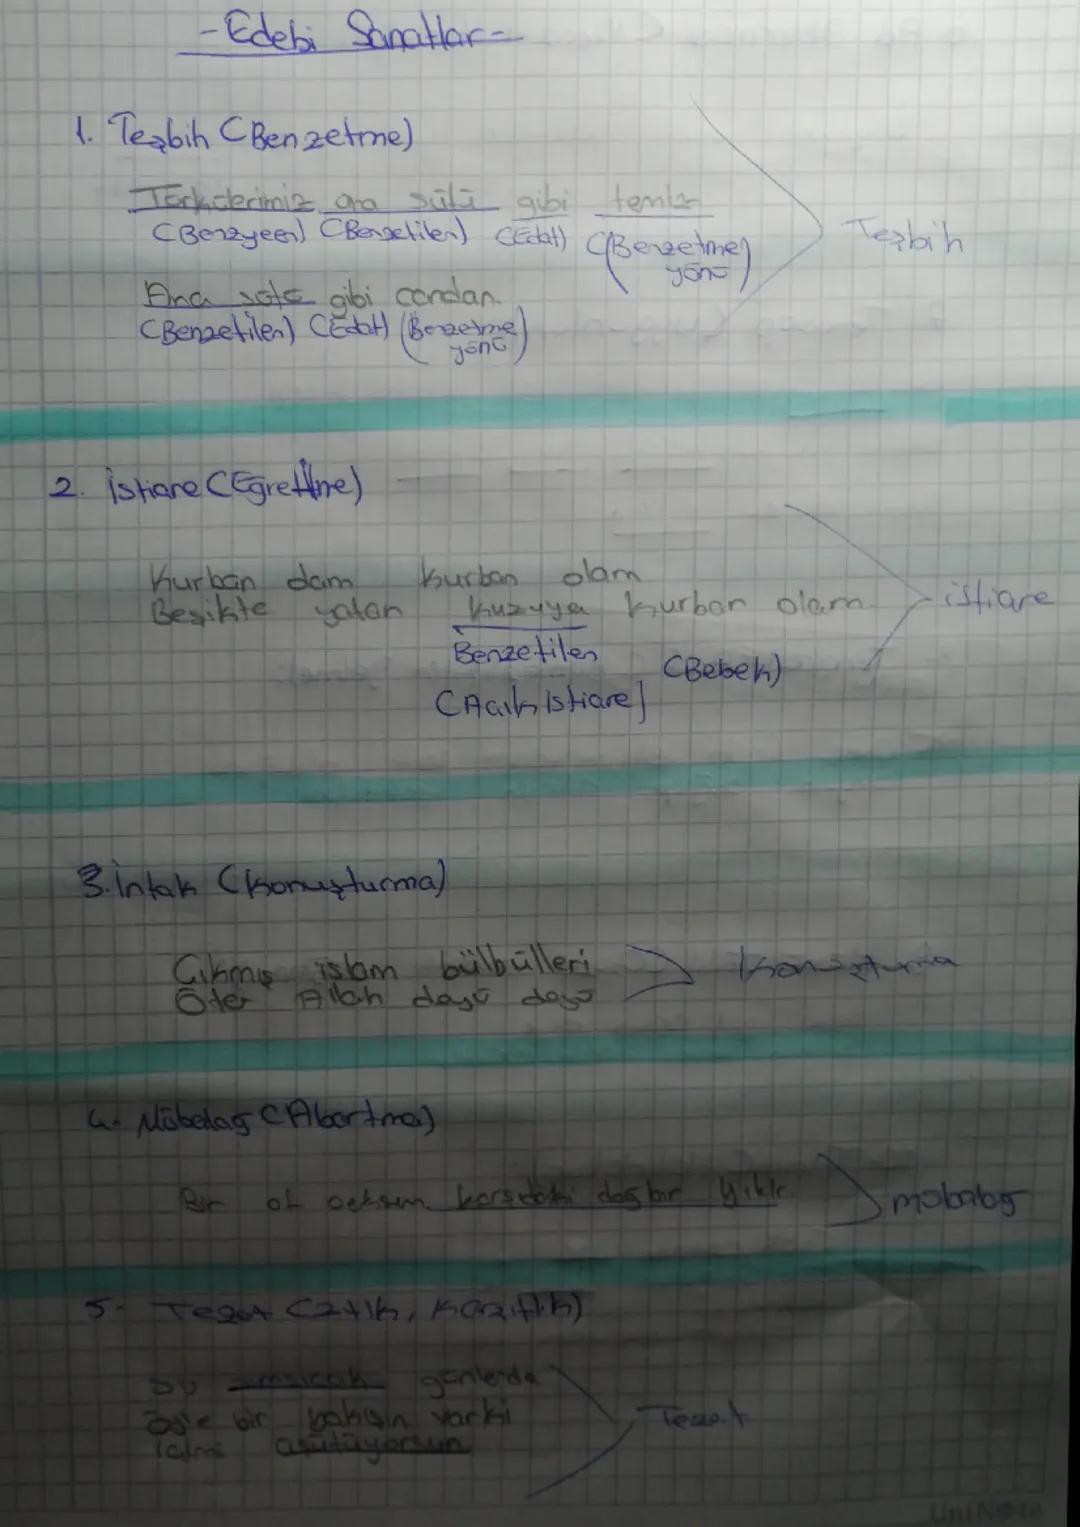 -Edebi Sanatlar-
1. Teşbih (Benzetme)
Türkülerimiz ana sütü gibi temiz
(Benzyeen) (Benzetilen) (Edat) (Benzetme yönü)
Teşbih
Ana sütü gibi candan.
(Benzetilen) (Edat) (Benzetme yönü)
2. İstiare (Eğretilme)
Kurban dam kurban olam
Beşikte yatan kuzuya kurban olam
istiare
Benzetilen
(Bebek)
(Açık İstiare)
3. İntak (Konuşturma)
Çıkmış islam bülbülleri
Öter Allah deyü deyü
Konuşturma
4- Mübalağ (Abartma)
Bir of çeksem karşdaki dağlar yıkılır
mübalağ
5- Tezat (Zıtlık, Karşıtlık)
Şu sımsıcak günlerde
Öyle bir bakışın varki
üşütüyorsun
Tezat
UniNote